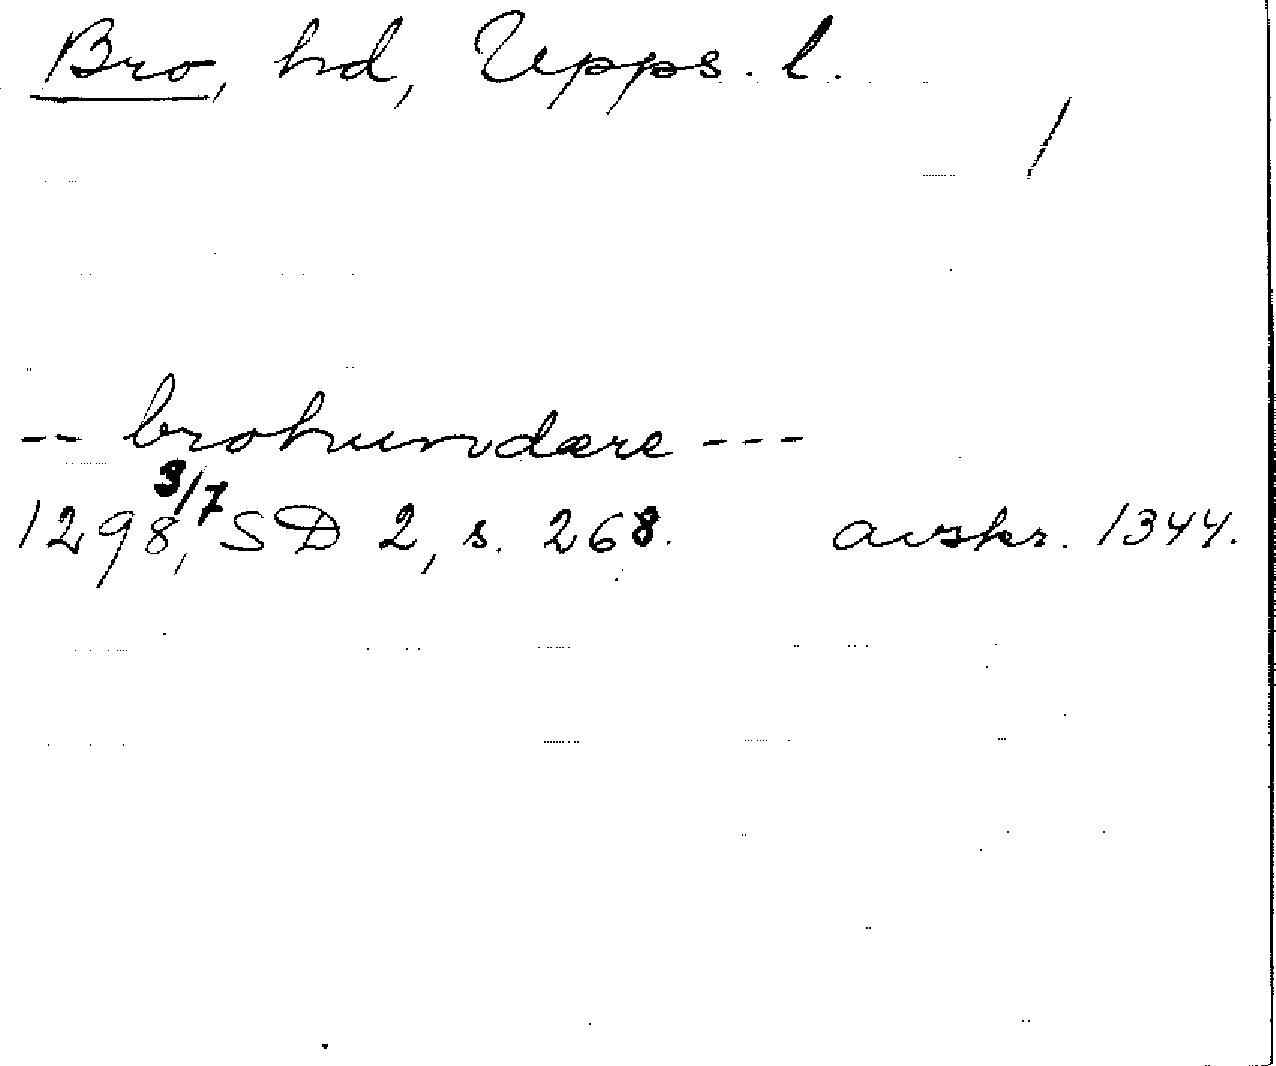 Bro, hd, Upps. l.
/
-- brohundære ---
1298 3/7, SD 2, s. 268. avskr. 1344.